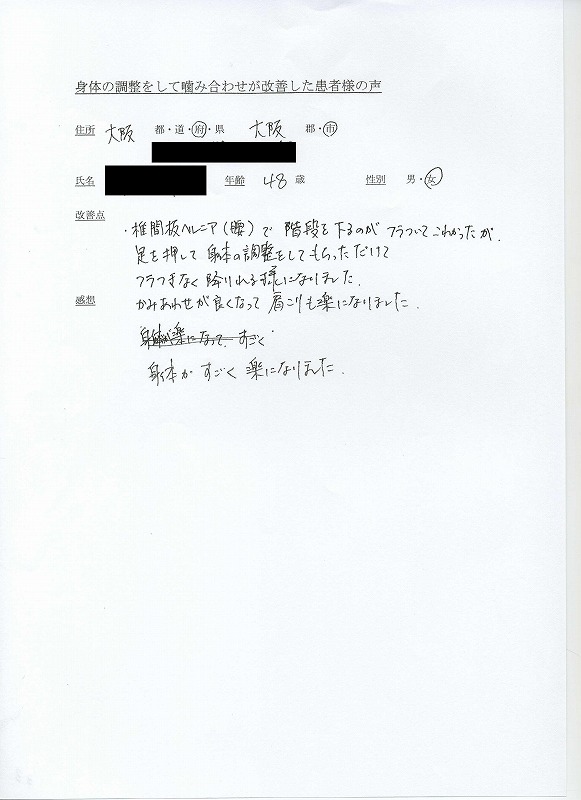 身体の調整をして噛み合わせが改善した患者様の声
住所 大阪 都・道・府・県 大阪 郡・市
氏名 年齢 48 歳 性別 男・女
改善点
・椎間板ヘルニア(腰)で 階段を下るのが フラついてこわかったが、
足を押して 身体の調整をしてもらっただけで
フラつきなく降りれる様になりました.
感想 かみあわせが良くなって 肩こりも楽になりました.
身体が楽になって、すごく
身体が すごく 楽になりました.